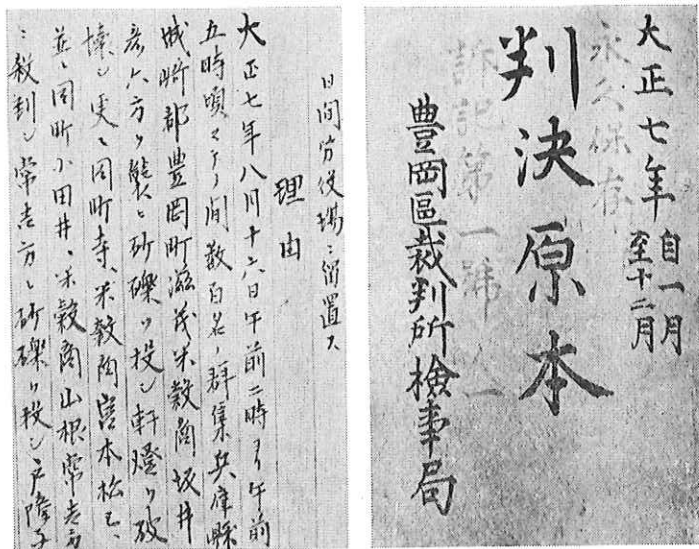 大正七年 自一月至十二月
永久保存
判決原本
訴記第一號ノ一
豊岡區裁判所檢事局
日間労役場ニ留置ス
理由
大正七年八月十六日午前二時ヨリ午前
五時頃マテノ間数百名ノ群集兵庫縣
城崎郡豊岡町滋茂米穀商坂井
彦六方ヲ襲ヒ砂礫ヲ投シ軒燈ヲ破
壊シ更ニ同町寺、米穀商宮本松已、
並ニ同町小田井、米穀商山根常吉方
ニ殺到シ常吉方ニ砂礫ヲ投シ戸障子